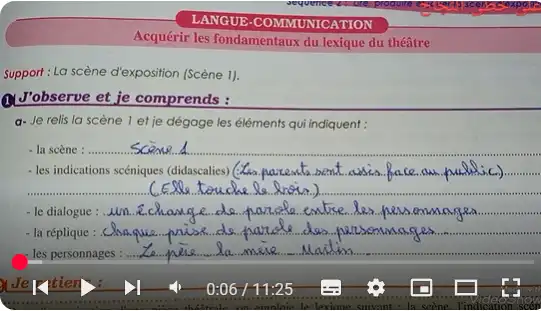 Séquence 2 : Lire, produire
LANGUE-COMMUNICATION
Acquérir les fondamentaux du lexique du théâtre
Support : La scène d'exposition (Scène 1).
1 J'observe et je comprends :
a- Je relis la scène 1 et je dégage les éléments qui indiquent :
- la scène : Scène 1
- les indications scéniques (didascalies) (Les parents sont assis face au public)
(Elle touche le bois)
- le dialogue : un Echange de parole entre les personnages
- la réplique : Chaque prise de parole des personnages
- les personnages : Le père _ la mère _ Martin
Je retiens :
0:06 / 11:25
VideoShow